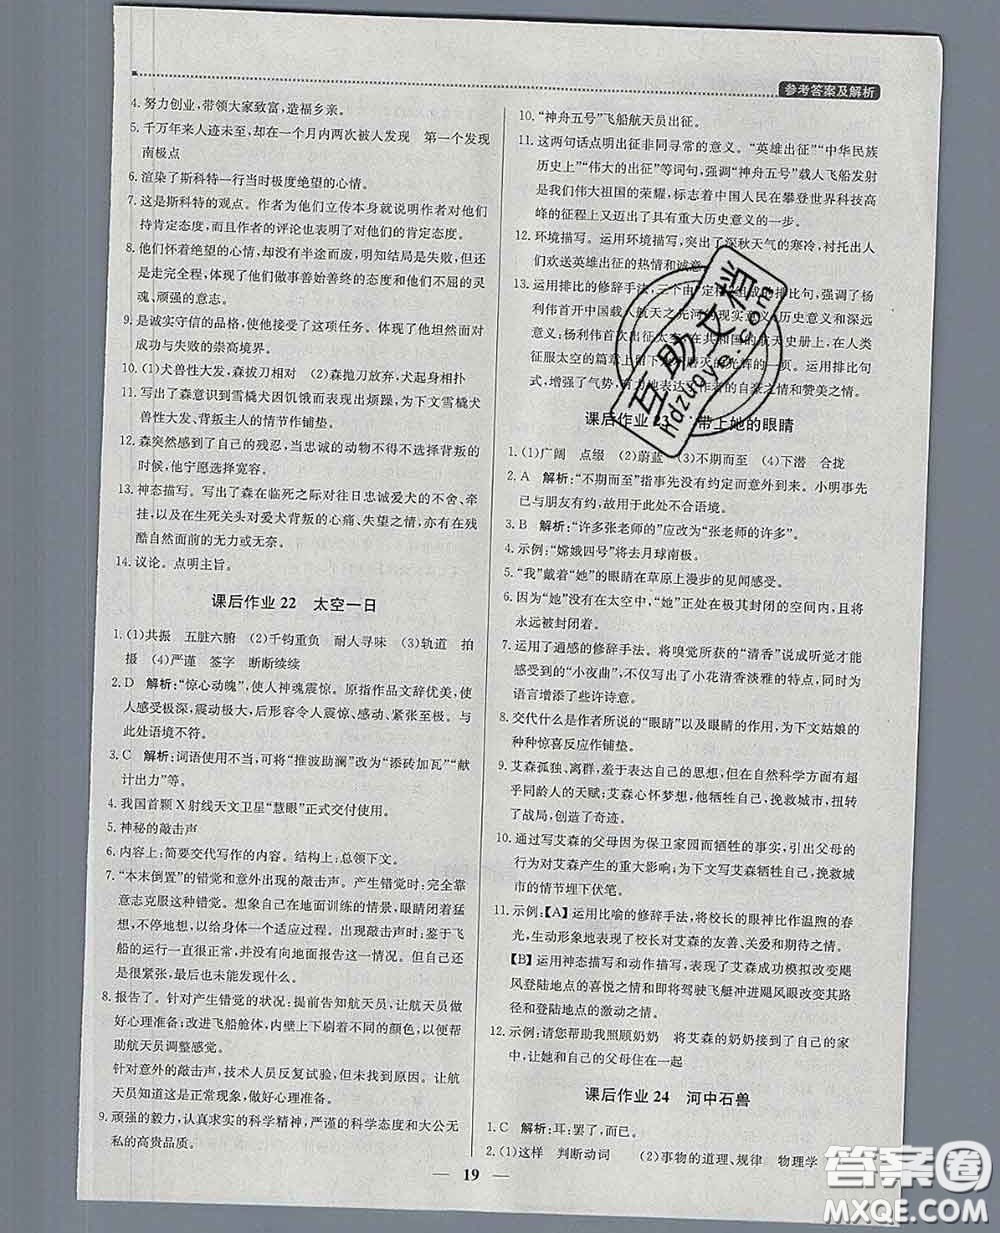 参考答案及解析
4. 努力创业，带领大家致富，造福乡亲。
5. 千万年来人迹未至，却在一个月内两次被人发现　第一个发现
南极点
6. 渲染了斯科特一行当时极度绝望的心情。
7. 这是斯科特的观点。作者为他们立传本身就说明作者对他们
持肯定态度，而且作者的评论也表明了对他们的肯定态度。
8. 他们怀着绝望的心情，却没有半途而废，明知结局是失败，但还
是走完全程，体现了他们做事善始善终的态度和他们坚强的灵
魂、顽强的意志。
9. 是诚实守信的品格，使他接受了这项任务。体现了他坦然面对
成功与失败的崇高境界。
10. (1)犬兽性大发，森拔刀相对　(2)森抛刀放弃，犬起身相扑
11. 写出了森意识到雪橇犬因饥饿而表现出烦躁，为下文雪橇犬
兽性大发、背叛主人的情节作铺垫。
12. 森突然感到了自己的残忍，当忠诚的动物不得不背叛的
时候，他宁愿选择宽容。
13. 神态描写。写出了森在临死之际对往日忠诚爱犬的不舍、牵
挂，以及在生死关头对爱犬背叛的心痛、失望之情，亦有在残
酷自然面前的无力或无奈。
14. 议论。点明主旨。
课后作业 22　太空一日
1. (1)共振　五脏六腑　(2)千钧重负　耐人寻味　(3)轨道　拍
摄　(4)严谨　签字　断断续续
2. D　解析：“惊心动魄”，使人神魂震惊。原指作品文辞优美，使
人感受极深，震动极大，后形容令人震惊、感动、紧张至极。与
此处语境不符。
3. C　解析：词语使用不当，可将“推波助澜”改为“添砖加瓦”“献
计出力”等。
4. 我国首颗 X 射线天文卫星“慧眼”正式交付使用。
5. 神秘的敲击声
6. 内容上：简要交代写作的内容。结构上：总领下文。
7. “本末倒置”的错觉和意外出现的敲击声。产生错觉时：完全靠
意志克服这种错觉。想象自己在地面训练的情景，眼睛闭着猛
想，不停地想，以给身体一个适应过程。出现敲击声时：鉴于飞
船的运行一直很正常，并没有向地面报告这一情况。但自己还
是很紧张，最后也未能发现什么。
8. 报告了。针对产生错觉的状况：提前告知航天员，让航天员做
好心理准备；改进飞船舱体，内壁上下刷着不同的颜色，以便帮
助航天员调整感觉。
针对意外的敲击声，技术人员反复试验，但找不到原因。让航
天员知道这是正常现象，做好心理准备。
9. 顽强的毅力，认真求实的科学精神，严谨的科学态度和大公无
私的高贵品质。
10. “神舟五号”飞船航天员出征。
11. 这两句话点明出征非同寻常的意义。“英雄出征”“中华民族
历史上”“伟大的出征”等词句，强调“神舟五号”载人飞船发射
是我们伟大祖国的荣耀，标志着中国人民在攀登世界科技高
峰的征程上又迈出了具有重大历史意义的一步。
12. 环境描写。运用环境描写，突出了深秋天气的寒冷，衬托出人
们欢送英雄出征的热情和诚意。
13. 运用排比的修辞手法，三个由“定 组成的排比句，强调了杨
利伟首开中国载人航天之先河的现实意义、历史意义和深远
意义，杨利伟首次出征太空，在共和国的航天史册上，在人类
征服太空的篇章上留下 磨灭的光辉的一页。运用排比句
式，增强了气势，有力地表达 作者的自豪之情和赞美之情。
课后作业 23　带上她的眼睛
1. (1)广阔　点缀　(2)蔚蓝　(3)不期而至　(4)下潜　合拢
2. A　解析：“不期而至”指事先没有约定而意外到来。小明事先
已与朋友有约，故用于此处不合语境。
3. B　解析：“许多张老师的”应改为“张老师的许多”。
4. 示例：“嫦娥四号”将去月球南极。
5. “我”戴着“她”的眼睛在草原上漫步的见闻感受。
6. 因为“她”没有在太空中，“她”正处在极其封闭的空间内，且将
永远被封闭着。
7. 运用了通感的修辞手法。将嗅觉所获的“清香”说成听觉才能
感受到的“小夜曲”，不仅写出了小花清香淡雅的特点，同时为
语言增添了些许诗意。
8. 交代什么是作者所说的“眼睛”以及眼睛的作用，为下文姑娘的
种种惊喜反应作铺垫。
9. 艾森孤独、离群，羞于表达自己的思想，但在自然科学方面有超
乎同龄人的天赋；艾森心怀梦想，他牺牲自己，挽救城市，扭转
了战局，创造了奇迹。
10. 通过写艾森的父母因为保卫家园而牺牲的事件，引出父母的
行为对艾森产生的重大影响，为下文写艾森牺牲自己，挽救城
市的情节埋下伏笔。
11. 示例：【A】运用比喻的修辞手法，将校长的眼神比作温煦的春
光，生动形象地表现了校长对艾森的友善、关爱和期待之情。
【B】运用神态描写和动作描写，表现了艾森成功模拟改变飓
风登陆地点的喜悦之情和即将驾驶飞艇冲进飓风眼改变飓风
登陆地点的激动之情。
12. 示例：请您帮助我照顾奶奶　将艾森的奶奶接到了自己的家
中，让她和自己的父母住在一起
课后作业 24　河中石兽
1. C　解析：耳：罢了，而已。
2. (1)这样　判断动词　(2)事物的道理、规律　物理学
19
互助文档
Hdzuoye.com
答案圈
MXQE.COM